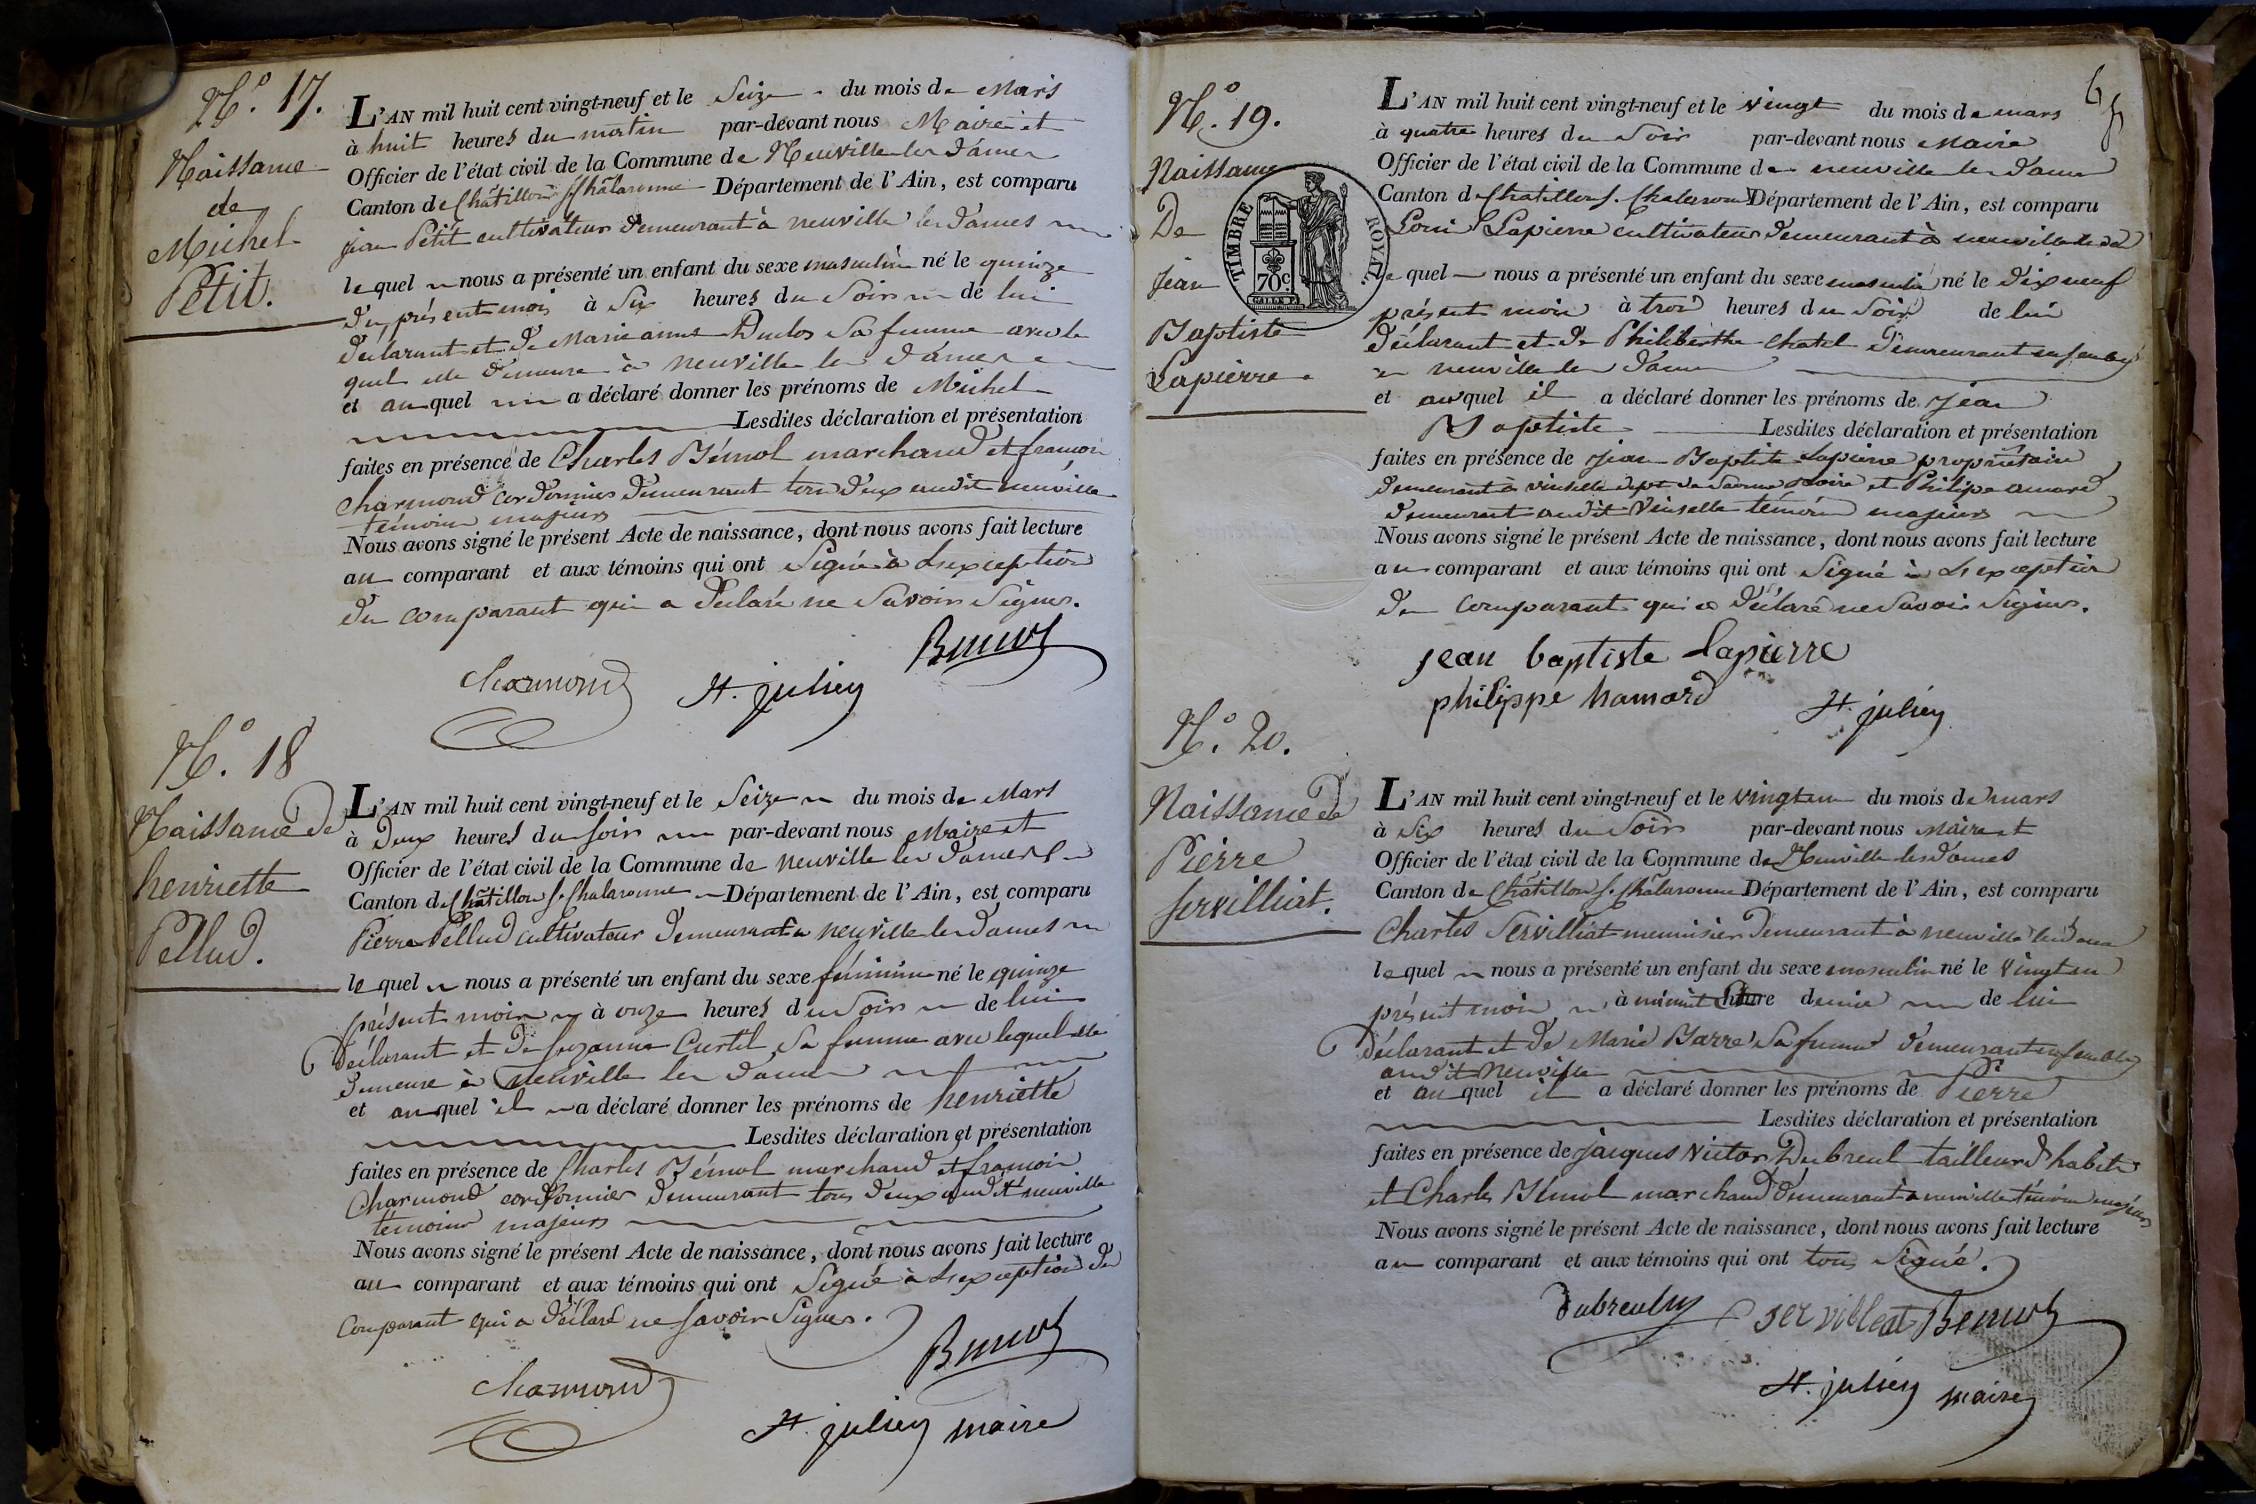 N.° 17.
Naissance
de
Michel
Petit.
L'AN mil huit cent vingt-neuf et le Seize du mois de Mars
à huit heures du matin par-devant nous Maire et
Officier de l'état civil de la Commune de Neuville les Dames
Canton de Châtillon S. Châlaronne Département de l'Ain, est comparu
jean Petit cultivateur demeurant à neuville les dames
le quel nous a présenté un enfant du sexe masculin né le quinze
du présent mois à Six heures du Soir de lui
déclarant et de Marie anne Duclos Sa femme avec le
quel elle demeure à neuville les dames
et au quel a déclaré donner les prénoms de Michel
Lesdites déclaration et présentation
faites en présence de Charles Bémol marchand et françois
Charmond cordonnier demeurant tous deux audit neuville
témoins majeurs
Nous avons signé le présent Acte de naissance, dont nous avons fait lecture
au comparant et aux témoins qui ont Signé à L'exception
du comparant qui a déclaré ne Savoir Signer.
Bemol
Charmond St. julien
N.° 18
Naissance de
henriette
Pellud.
L'AN mil huit cent vingt-neuf et le Seize du mois de Mars
à Deux heures du soir par-devant nous Maire et
Officier de l'état civil de la Commune de neuville les Dames
Canton de Châtillon S. Chalaronne Département de l'Ain, est comparu
Pierre Pellud cultivateur demeurant à neuville les dames
le quel nous a présenté un enfant du sexe féminin né le quinze
présent mois à onze heures du Soir de lui
Déclarant et de suzanne Curtil Sa femme avec lequel elle
demeure à neuville les dames
et au quel il a déclaré donner les prénoms de henriette
Lesdites déclaration et présentation
faites en présence de Charles Bémol marchand et françois
Charmond cordonnier demeurant tous deux audit neuville
témoins majeurs
Nous avons signé le présent Acte de naissance, dont nous avons fait lecture
au comparant et aux témoins qui ont Signé à L'exception du
comparant qui a déclaré ne savoir Signer.
Bemol
Charmond
St. julien maire
N.° 19.
Naissance
De
jean
Baptiste
Lapierre.
TIMBRE ROYAL.
70c
L'AN mil huit cent vingt-neuf et le vingt du mois de mars
à quatre heures du Soir par-devant nous Maire
Officier de l'état civil de la Commune de neuville les dames
Canton de Chatillon S. Chalaronne Département de l'Ain, est comparu
Loui Lapierre cultivateur demeurant à neuville
le quel nous a présenté un enfant du sexe masculin né le dix neuf
présent mois à trois heures du Soir de lui
déclarant et de Philiberthe Chatel demeurant ensemble
à neuville les dames
et auquel il a déclaré donner les prénoms de jean
Baptiste Lesdites déclaration et présentation
faites en présence de jean Baptiste Lapierre propriétaire
demeurant à vinzelle dept de Saone Loire et Philipe amard
demeurant audit Vinzelle témoins majeurs
Nous avons signé le présent Acte de naissance, dont nous avons fait lecture
au comparant et aux témoins qui ont Signé à L'exception
du comparant qui a déclaré ne Savoir Signer.
jean baptiste Lapierre
philippe hamard St. julien
N.° 20.
Naissance de
Pierre
servilliat.
L'AN mil huit cent vingt-neuf et le vingt un du mois de mars
à Six heures du Soir par-devant nous Maire et
Officier de l'état civil de la Commune de Neuville les dames
Canton de Châtillon S. Châlaronne Département de l'Ain, est comparu
Charles Servilliat menuisier demeurant à neuville les dames
le quel nous a présenté un enfant du sexe masculin né le vingt un
présent mois à minuit heure demie de lui
déclarant et de Marie Barre Sa femme demeurant ensemble
audit Neuville
et au quel il a déclaré donner les prénoms de Pierre
Lesdites déclaration et présentation
faites en présence de jacques Victor Dubreul tailleur d'habits
et Charles Bémol marchand demeurant à neuville témoins majeurs
Nous avons signé le présent Acte de naissance, dont nous avons fait lecture
au comparant et aux témoins qui ont tous Signé.
Servilleat Bemol
St. julien maire